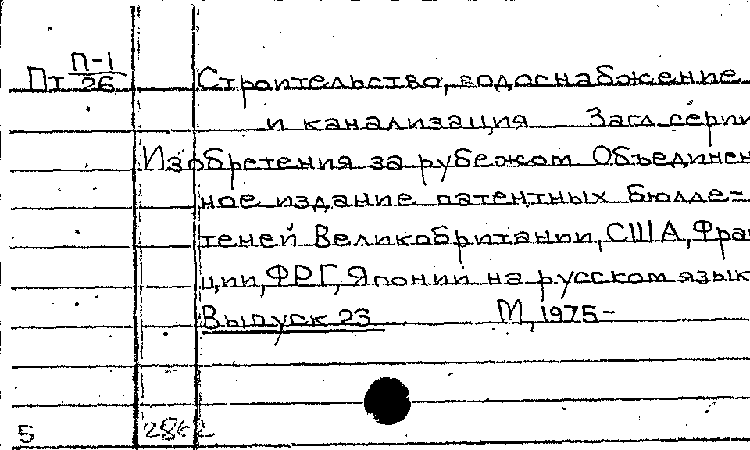 Пт П-1/26 Строительство, водоснабжение
и канализация Загл. серии
Изобретения за рубежом Объединен-
ное издание патентных бюлле-
теней Великобритании, США, Фран
ции, ФРГ, Японии на русском язык
Выпуск 23 М, 1975-
5